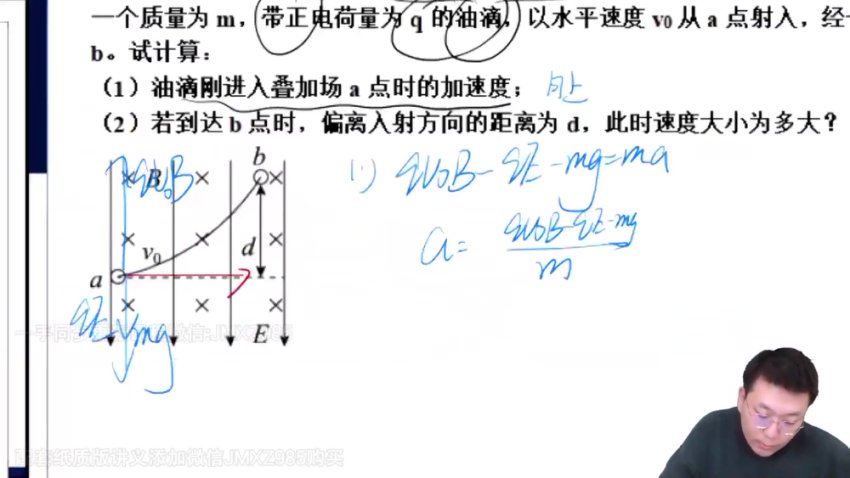 一个质量为 m，带正电荷量为 q 的油滴，以水平速度 v₀ 从 a 点射入，经
b。试计算：
（1）油滴刚进入叠加场 a 点时的加速度；向上
（2）若到达 b 点时，偏离入射方向的距离为 d，此时速度大小为多大？
b
B qv₀B
(1) qv₀B - qE - mg = ma
v₀
d
a = qv₀B - qE - mg / m
a
qE
mg
E
微信:JMXZ985
配套纸质版讲义添加微信JMXZ985购买